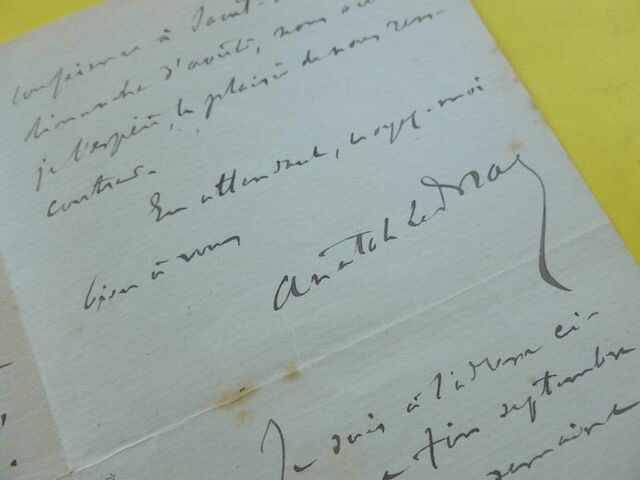 conférence à Saint-
dimanche d'août, nous au
je l'espère, le plaisir de nous ren-
contrer.
En attendant, croyez-moi
bien à vous
Anatole Le Braz
Je suis à l'adresse ci-
fin septembre
semaine